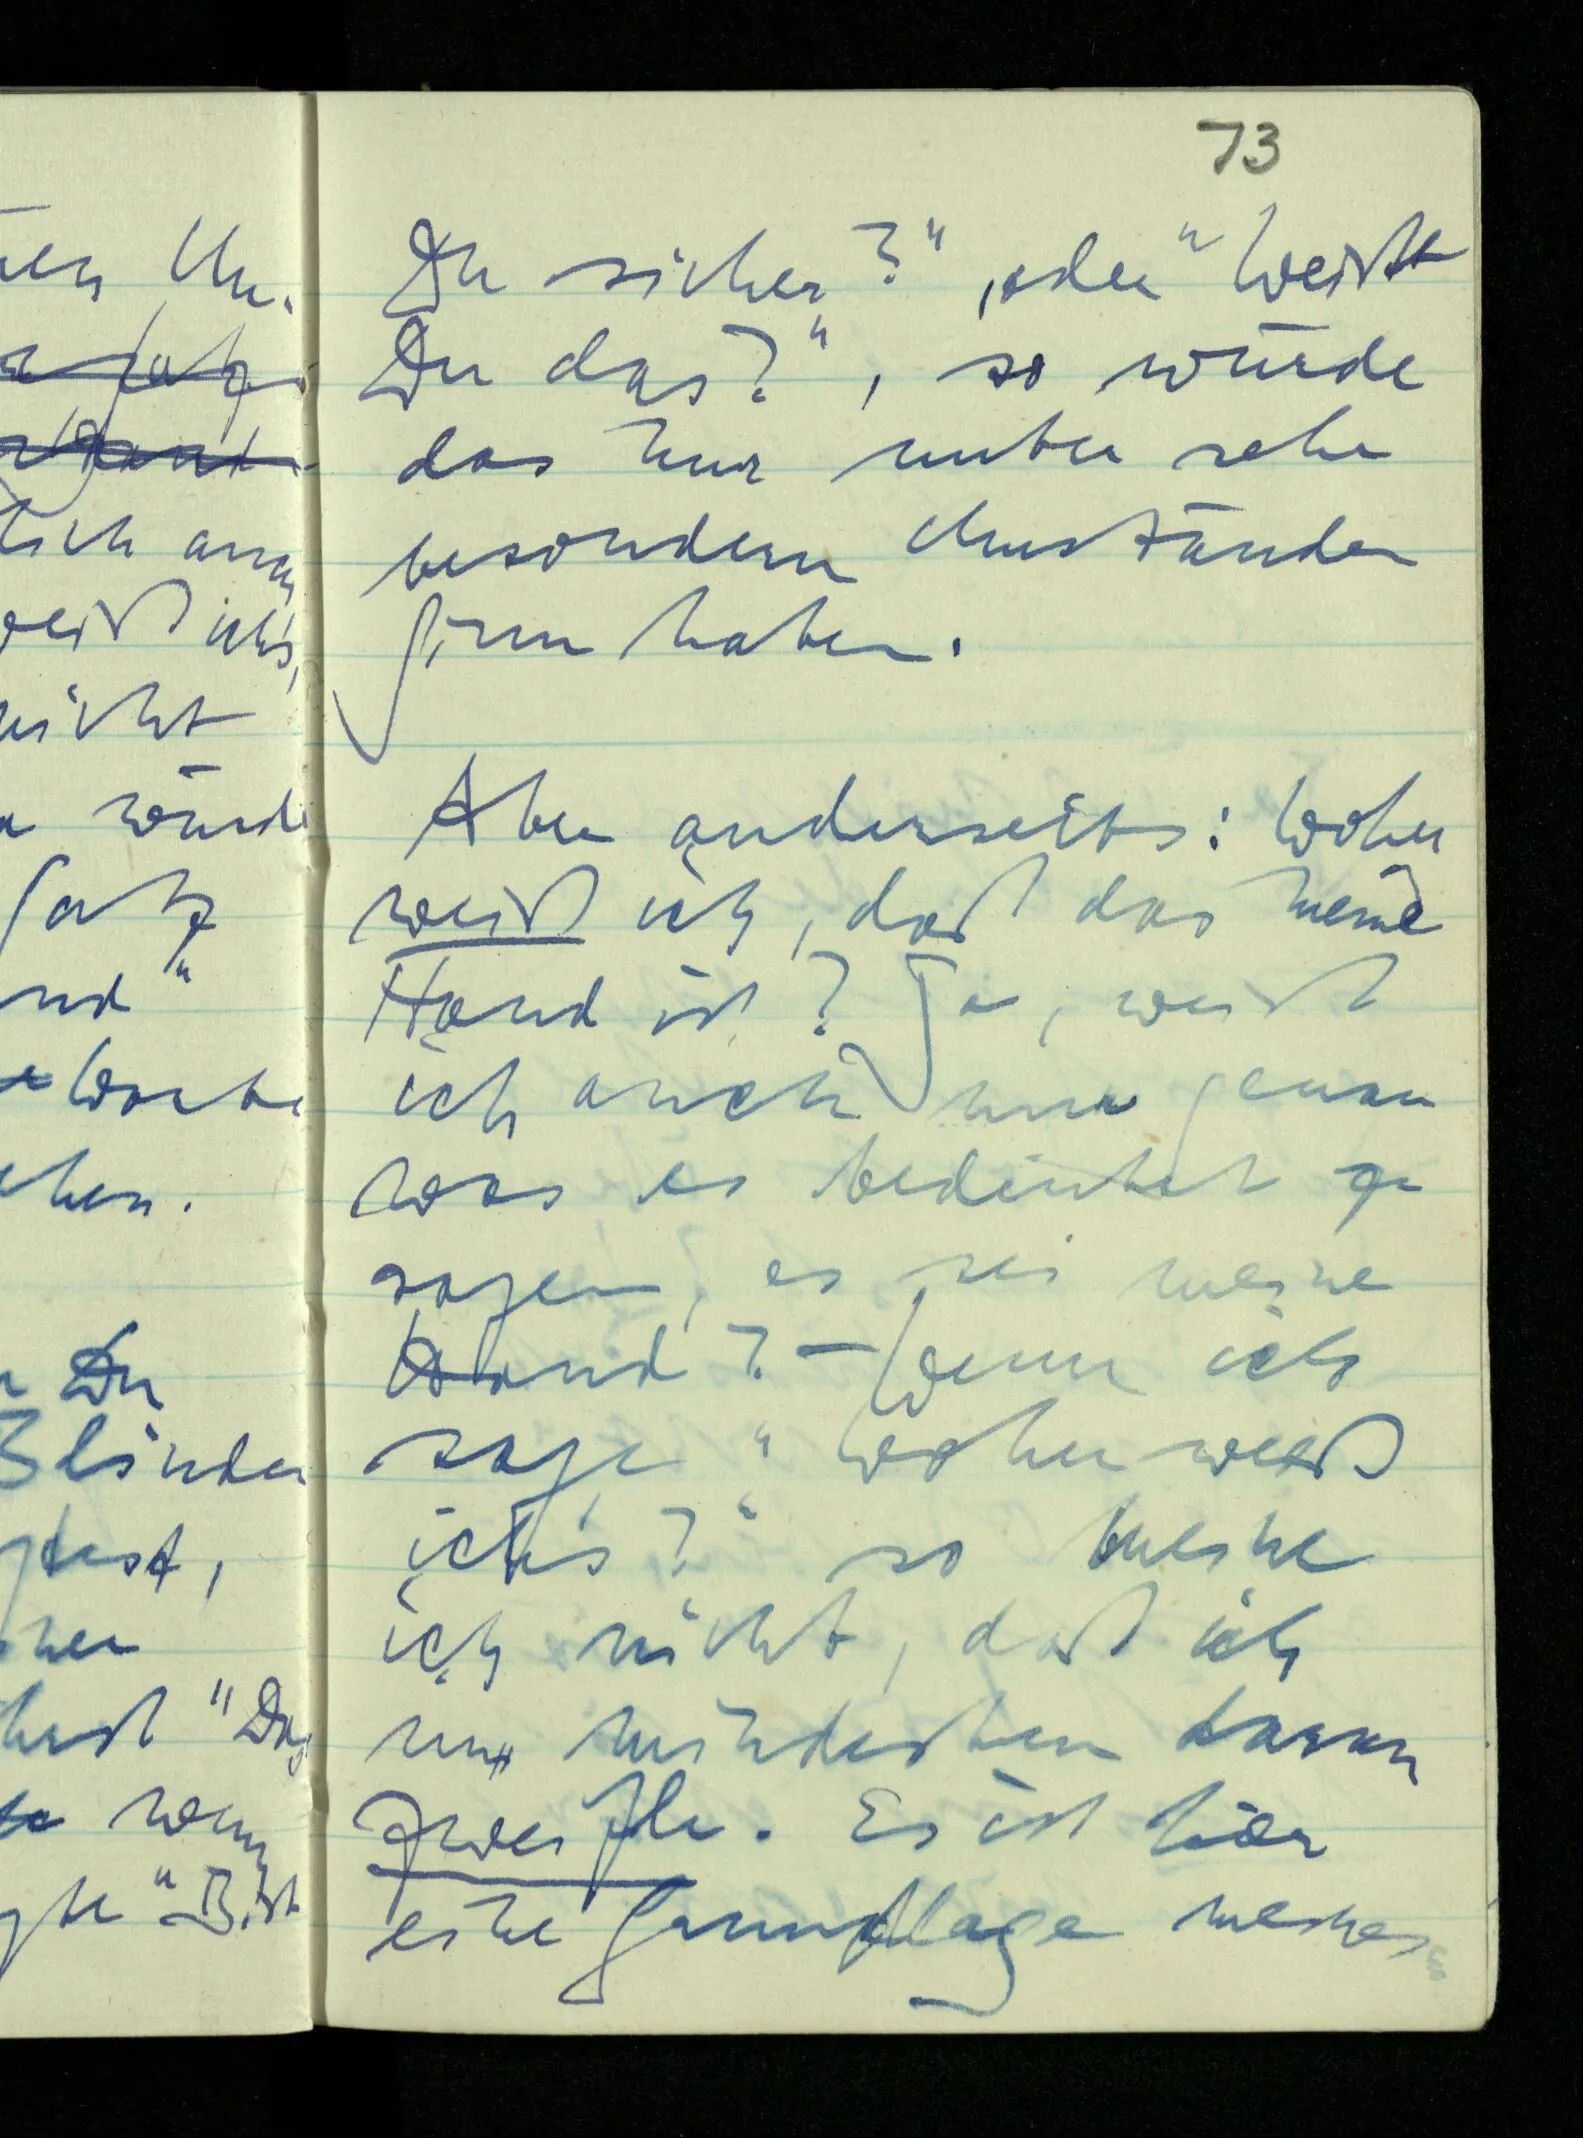 73
Du sicher?", oder "Weißt
Du das?", so würde
das nur unter sehr
besondern Umständen
Sinn haben.
Aber anderseits: Woher
weiß ich, daß das meine
Hand ist? Ja, weiß
ich auch nur genau
was es bedeutet zu
sagen, es sei meine
Hand? – Wenn ich
sage "woher weiß
ich's?" so meine
ich nicht, daß ich
im mindesten daran
zweifle. Es ist hier
eine Grundlage meines
Un-
Satz
lich an
weiß ich's,
nicht
würde
Satz
Worte
Du
Blinden
"Das
wenn
"Bist